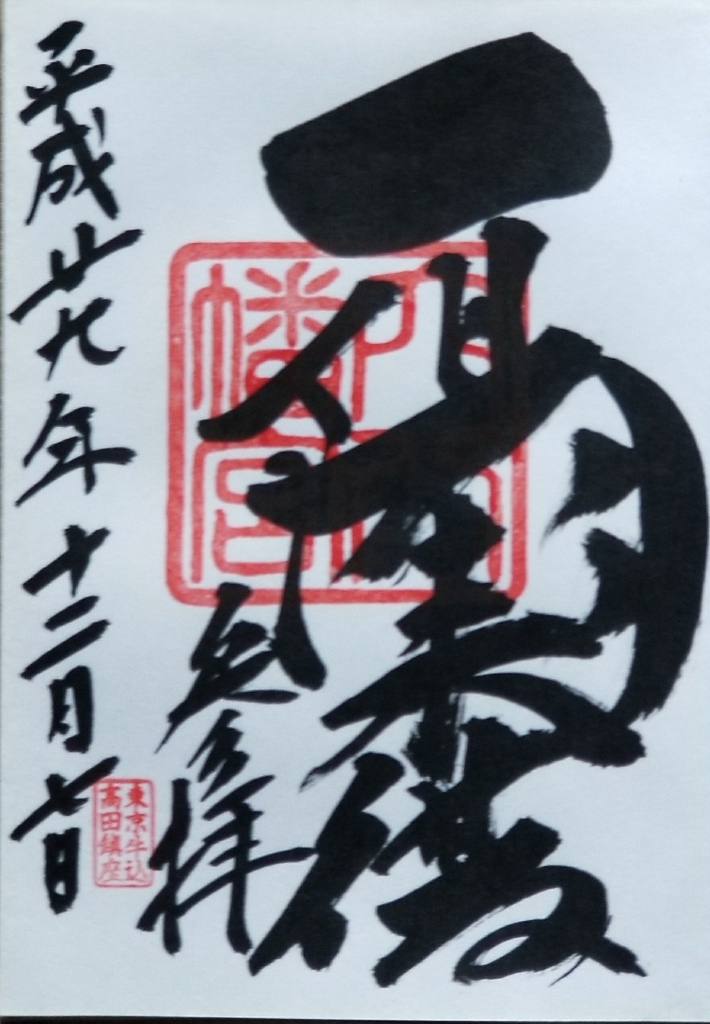 一陽来復
幡宮
拝
東京牛込
高田鎮座
平成廿九年十二月七日